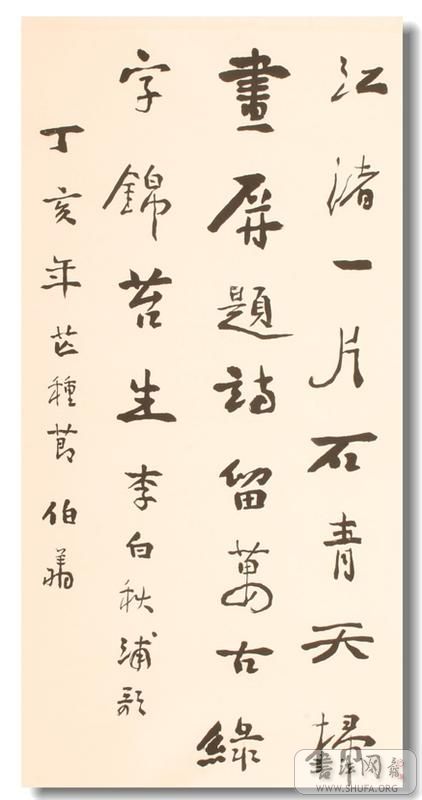 江渚一片石青天掃
畫屏題詩留萬古綠
字錦苔生李白秋浦歌
丁亥年芒種節伯
書法网
WWW.SHUFA.ORG